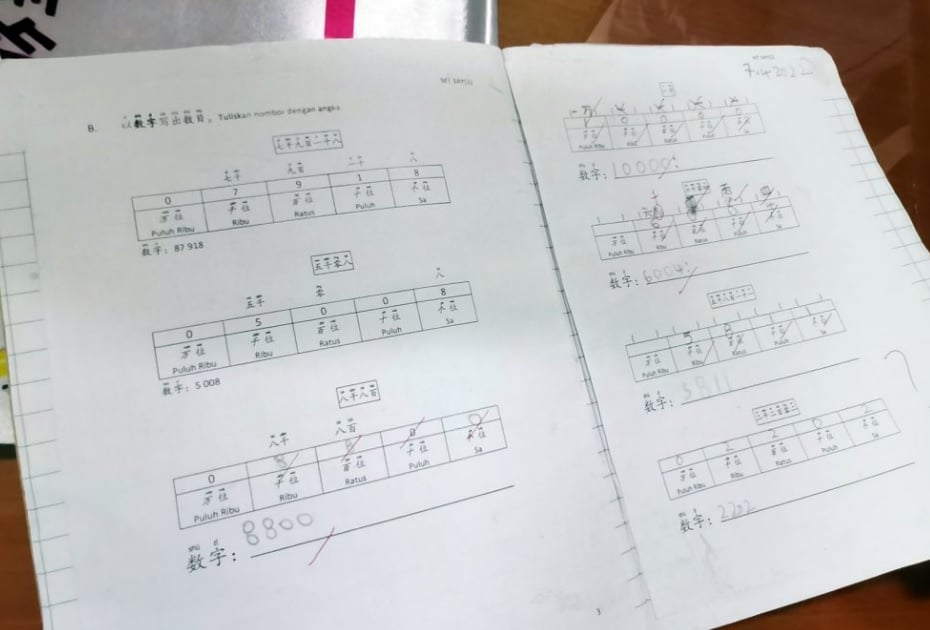 B. 以数字写出数目。Tuliskan nombor dengan angka
七千九百一十八
七千 九百 一十 八
0 7 9 1 8
万位 千位 百位 十位 个位
Puluh Ribu Ribu Ratus Puluh Sa
数字：87 918
五千零八
五千 零 八
0 5 0 0 8
万位 千位 百位 十位 个位
Puluh Ribu Ribu Ratus Puluh Sa
数字：5 008
八千八百
八千 八百
0 8 8 0 0
万位 千位 百位 十位 个位
Puluh Ribu Ribu Ratus Puluh Sa
shù zì
数字：8800
3
7.4.2022
一万
0 0 0 0
Puluh Ribu Ribu Ratus Puluh Sa
数字：10000
万位 千位 百位 十位 个位
Puluh Ribu
数字：6004
五千八百一十一
5 8
万位 千位 百位 十位 个位
Puluh Ribu Ribu Ratus Puluh Sa
数字：5811
二千二百零二
0 2 2 0 2
万位 千位 百位 十位 个位
Puluh Ribu Ribu Ratus Puluh Sa
数字：2202